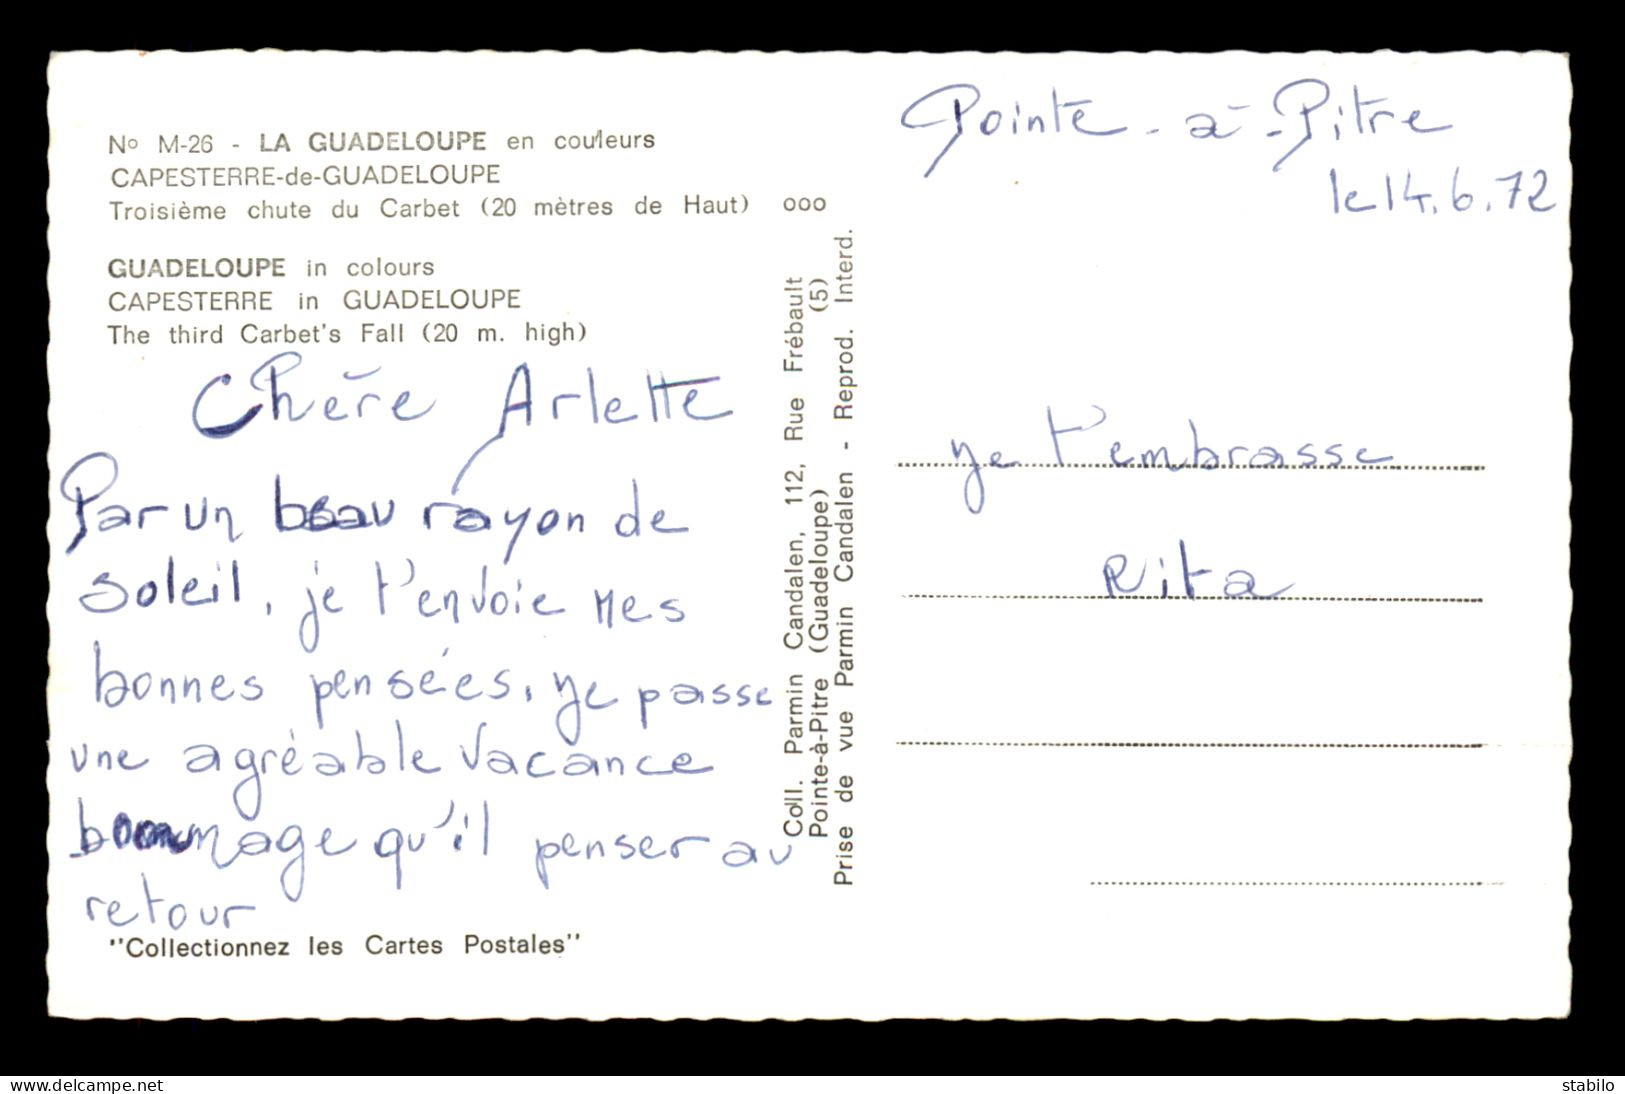 No M-26 - LA GUADELOUPE en couleurs
CAPESTERRE-de-GUADELOUPE
Troisième chute du Carbet (20 mètres de Haut) ooo
GUADELOUPE in colours
CAPESTERRE in GUADELOUPE
The third Carbet's Fall (20 m. high)
Chère Arlette
Par un beau rayon de
soleil, je t'envoie mes
bonnes pensées. Je passe
une agréable vacance
dommage qu'il penser au
retour
"Collectionnez les Cartes Postales"
Coll. Parmin Candalen, 112, Rue Frébault
Pointe-à-Pitre (Guadeloupe) (5)
Prise de vue Parmin Candalen - Reprod. Interd.
Pointe-à-Pitre
le 14.6.72
Je t'embrasse
Rita
www.delcampe.net
stabilo